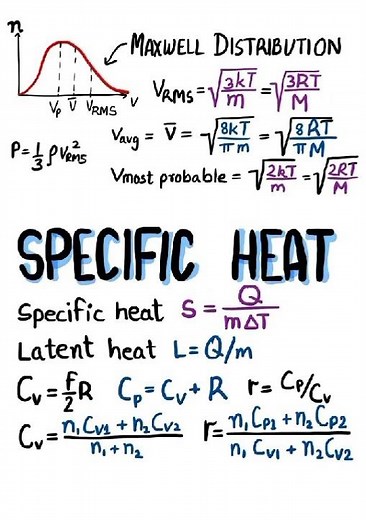 n
MAXWELL DISTRIBUTION
Vp V̄ VRMS V
VRMS = √(3kT/m) = √(3RT/M)
P = 1/3 ρv²RMS
Vavg = V̄ = √(8kT/πm) = √(8RT/πM)
Vmost probable = √(2kT/m) = √(2RT/M)
SPECIFIC HEAT
Specific heat S = Q/mΔT
Latent heat L = Q/m
Cv = f/2 R Cp = Cv + R r = Cp/Cv
Cv = (n₁Cv1 + n₂Cv2)/(n₁ + n₂) r = (n₁Cp1 + n₂Cp2)/(n₁Cv1 + n₂Cv2)